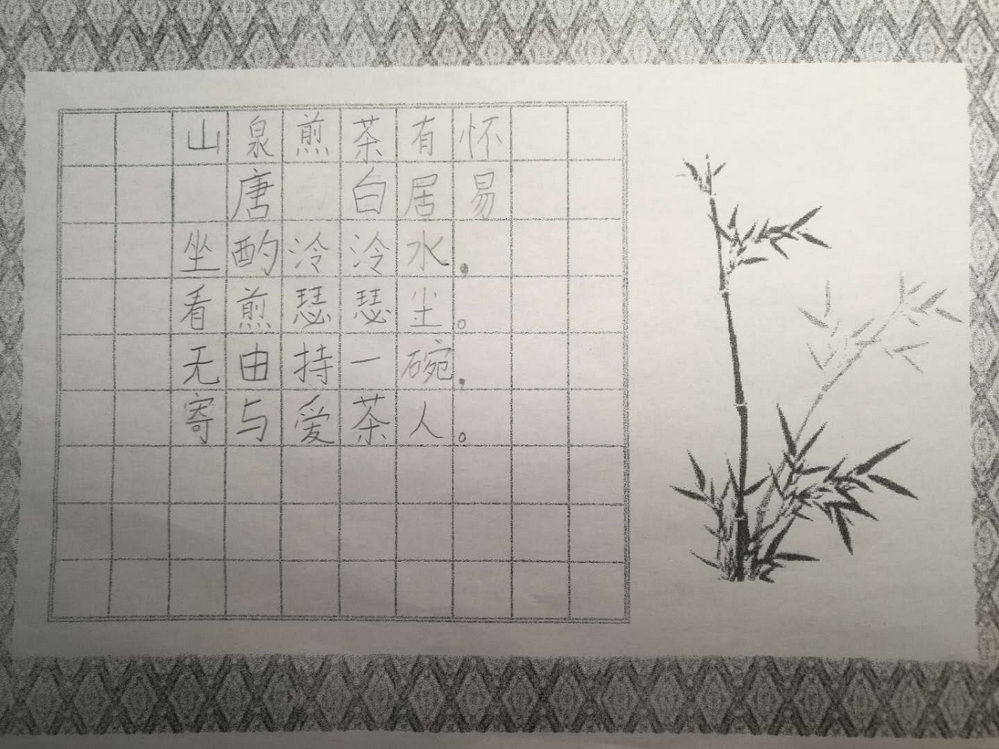 山泉煎茶有怀
唐 白居易
坐酌泠泠水，
看煎瑟瑟尘。
无由持一碗，
寄与爱茶人。